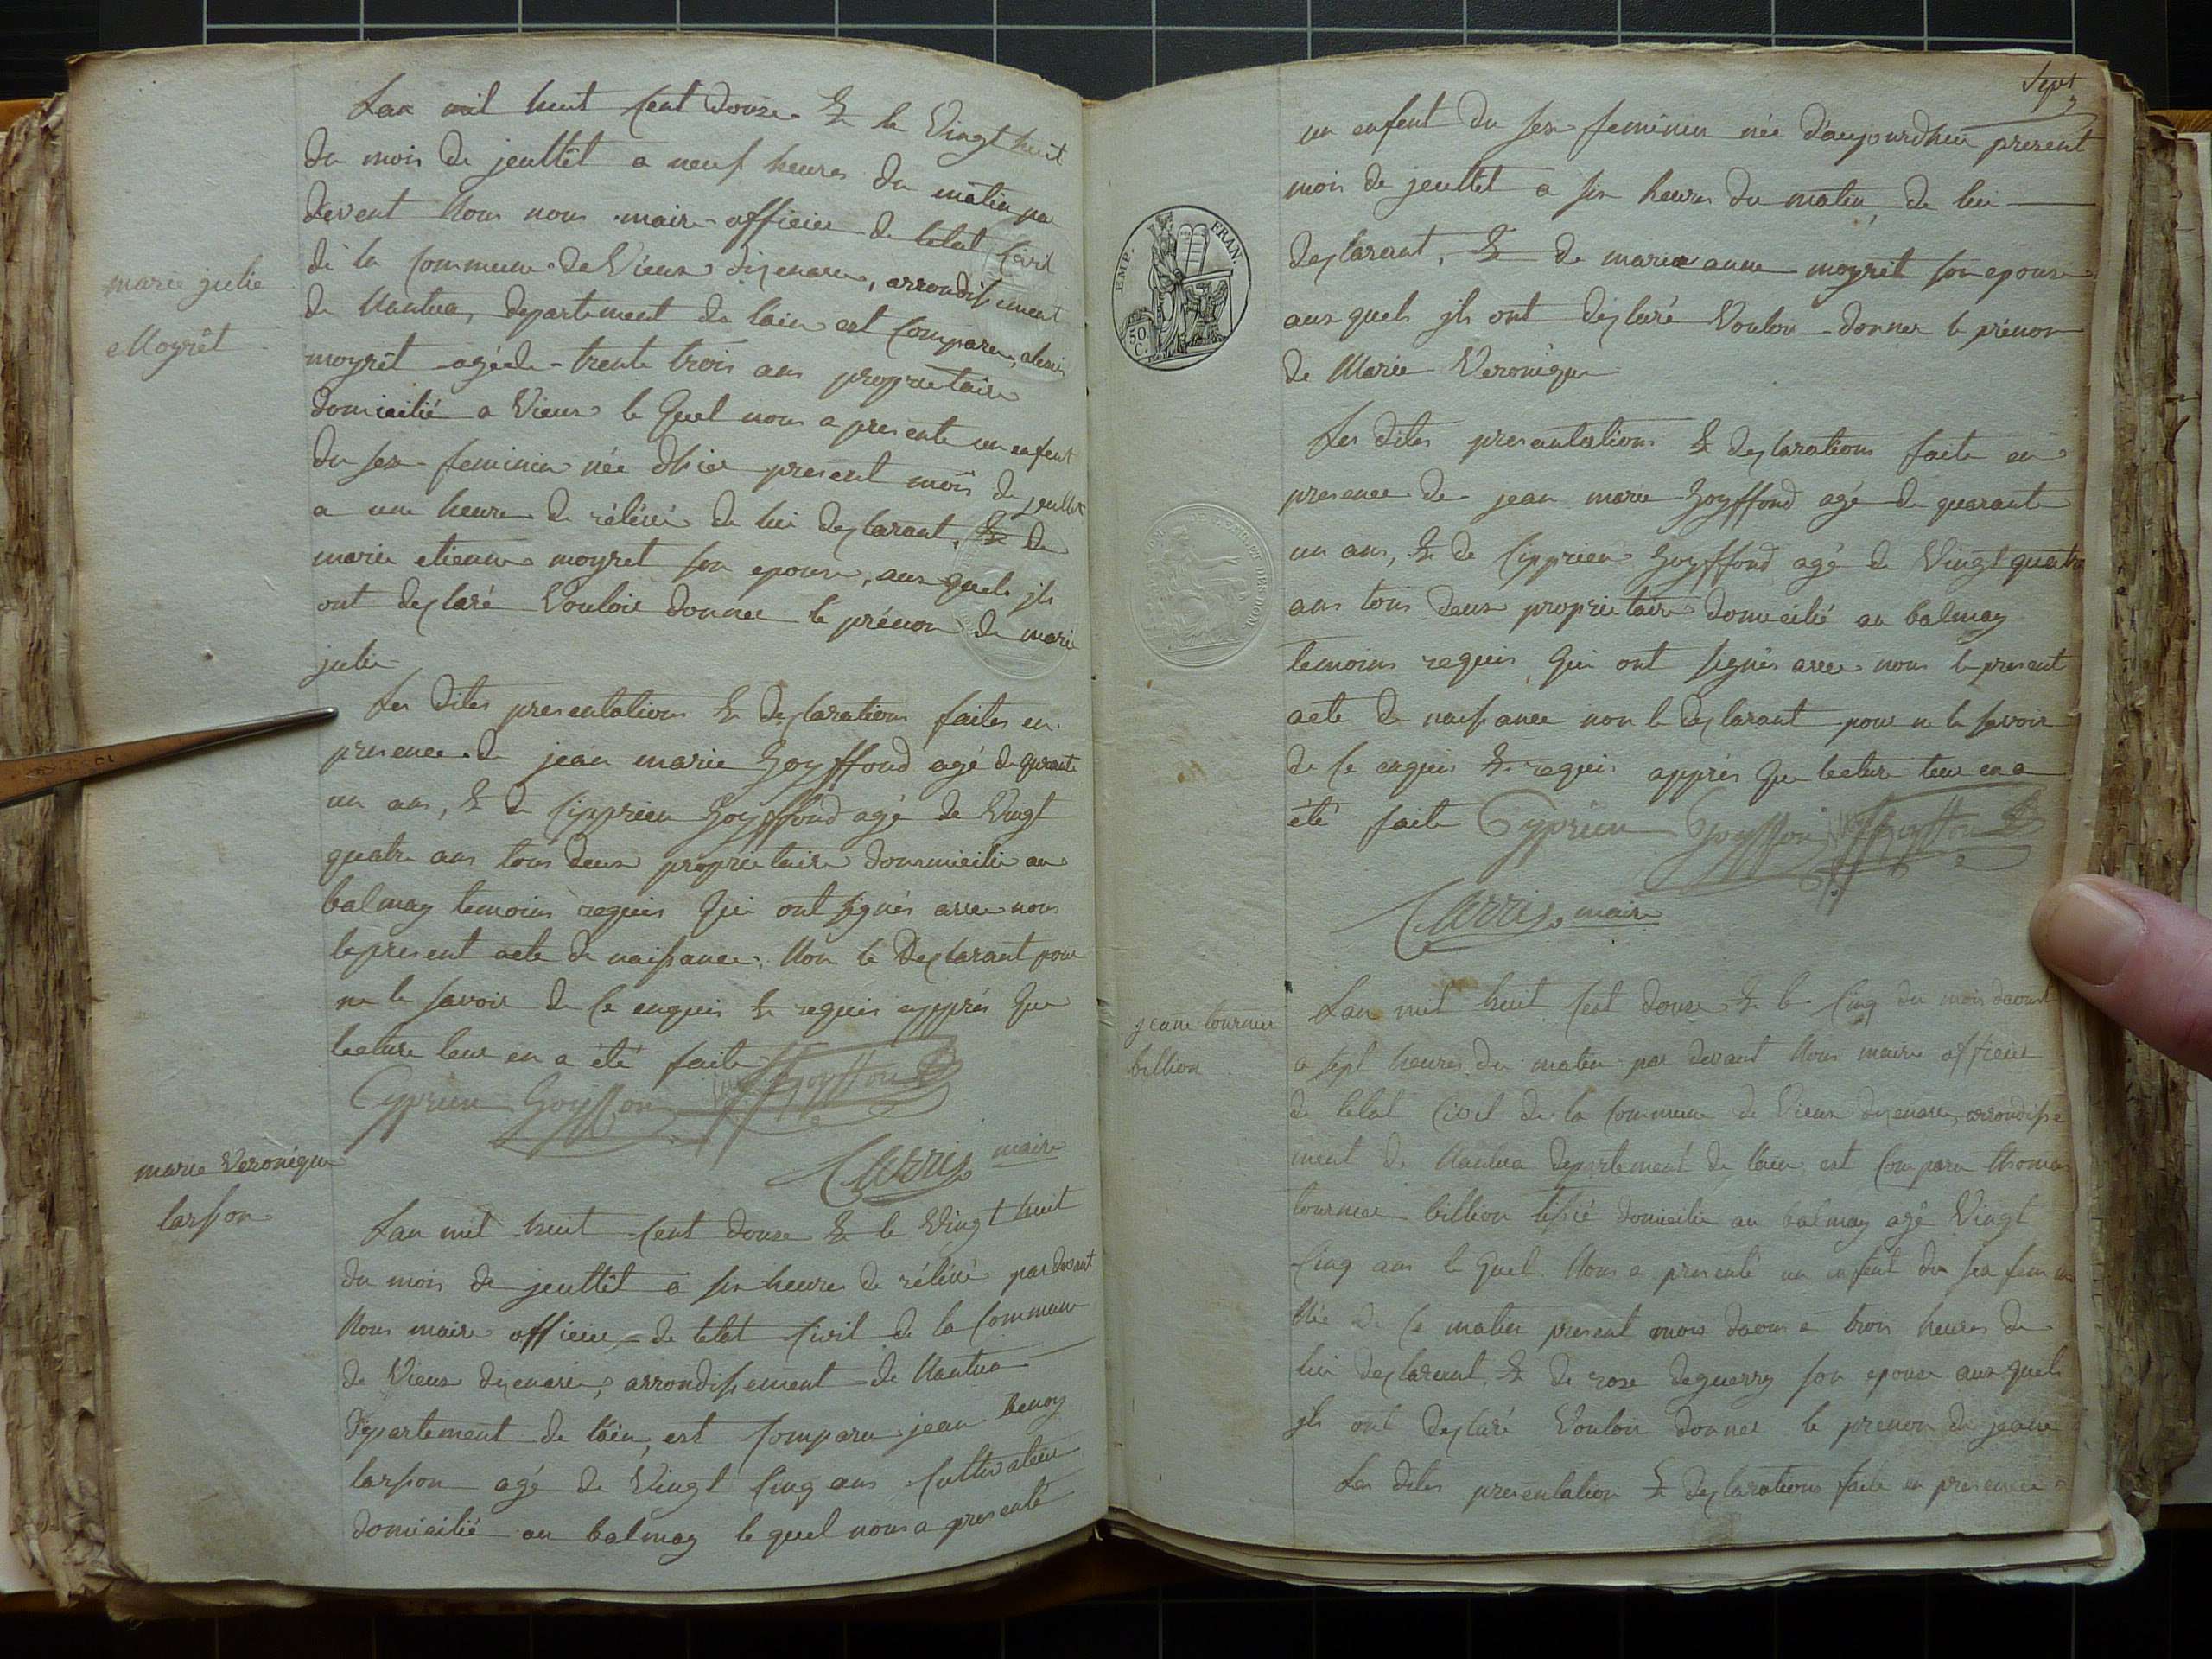 Lan mil huit Cent douze & le Vingt huit
du mois de jeuttêt a neuf heures du matin par
devent Nous nous maire officier de letat Civil
de la Commune de Vieux dizenave, arrondissement
de Nantua, departement de lain est Comparu, alexis
moyrêt agé de trente trois ans proprietaire
domicilié a Vieux le quel nous a presente un enfent
du sex feminin née dhier present mois de jeuttêt
a une heure de rélévé de lui deczlarant, & de
marie etienne moyret son epouse, aux quels jls
ont dezlaré Vouloir donner le prénom de marie
julie
marie julie
Moyrêt
Les dites presentations & dezlarations faites en
presence de jean marie Goyffond agé de quarante
un ans, & de Cipprien Goyffond agé de Vingt
quatre ans tous deux proprietaire doumicilie au
balmay temoins requis Qui ont signés avec nous
le present acte de naissance, Non le Dezlarant pour
ne le savoir de Ce enquis & requis apprés Que
lecture leur en a été faite
Cyprien Goyffon
Carris maire
marie Veronique
larson
Lan mil huit Cent douze & le Vingt huit
du mois de jeuttêt a six heures de rélévé par devant
Nous maire officier de letat Civil de la Commune
de Vieux dizenave, arrondissement de Nantua
département de lain, est Comparu jean benoy
larson agé de Vingt Cinq ans Cultivateur
domicilié au balmay le quel nous a presenté
Sept
un enfent du sex feminin née d'aujourdhui present
mois de jeuttêt a six heures du matin, de lui
dezlarant, & de marie anne moyrêt son epouse
aux quels jls ont dezlaré Vouloir donner le prénom
de Marie Veronique
EMP. FRAN.
50 C.
Les dites presantations & dezlarations faite en
presence de jean marie Goyffond agé de quarante
un ans, & de Cipprien Goyffond agé de Vingt quatre
ans tous deux proprietaire domicilié au balmay
temoins requis, Qui ont signés avec nous le present
acte de naissance non le dezlarant pour ne le savoir
de Ce enquis & requis apprés Que lecture leur en a
été faite Cyprien Goyffon
Carris maire
jeane tournier
billion
Lan mil huit Cent douze & le Cinq du mois daoust
a sept heures du matin par devant Nous maire officier
de letat Civil de la Commune de Vieux dizenave, arrondisse
ment de Nantua departement de lain, est Comparu thomas
tournier billion domicilie au balmay agé Vingt
Cinq ans le quel Nous a presenté un enfent du sex femin
Née de Ce matin present mois daous a trois heures de
lui dezlarant, & de rose deguerry son epouse aux quels
jls ont dezlaré Vouloir donner le prenom de jeane
Les dites presentation & dezlarations faite en presence